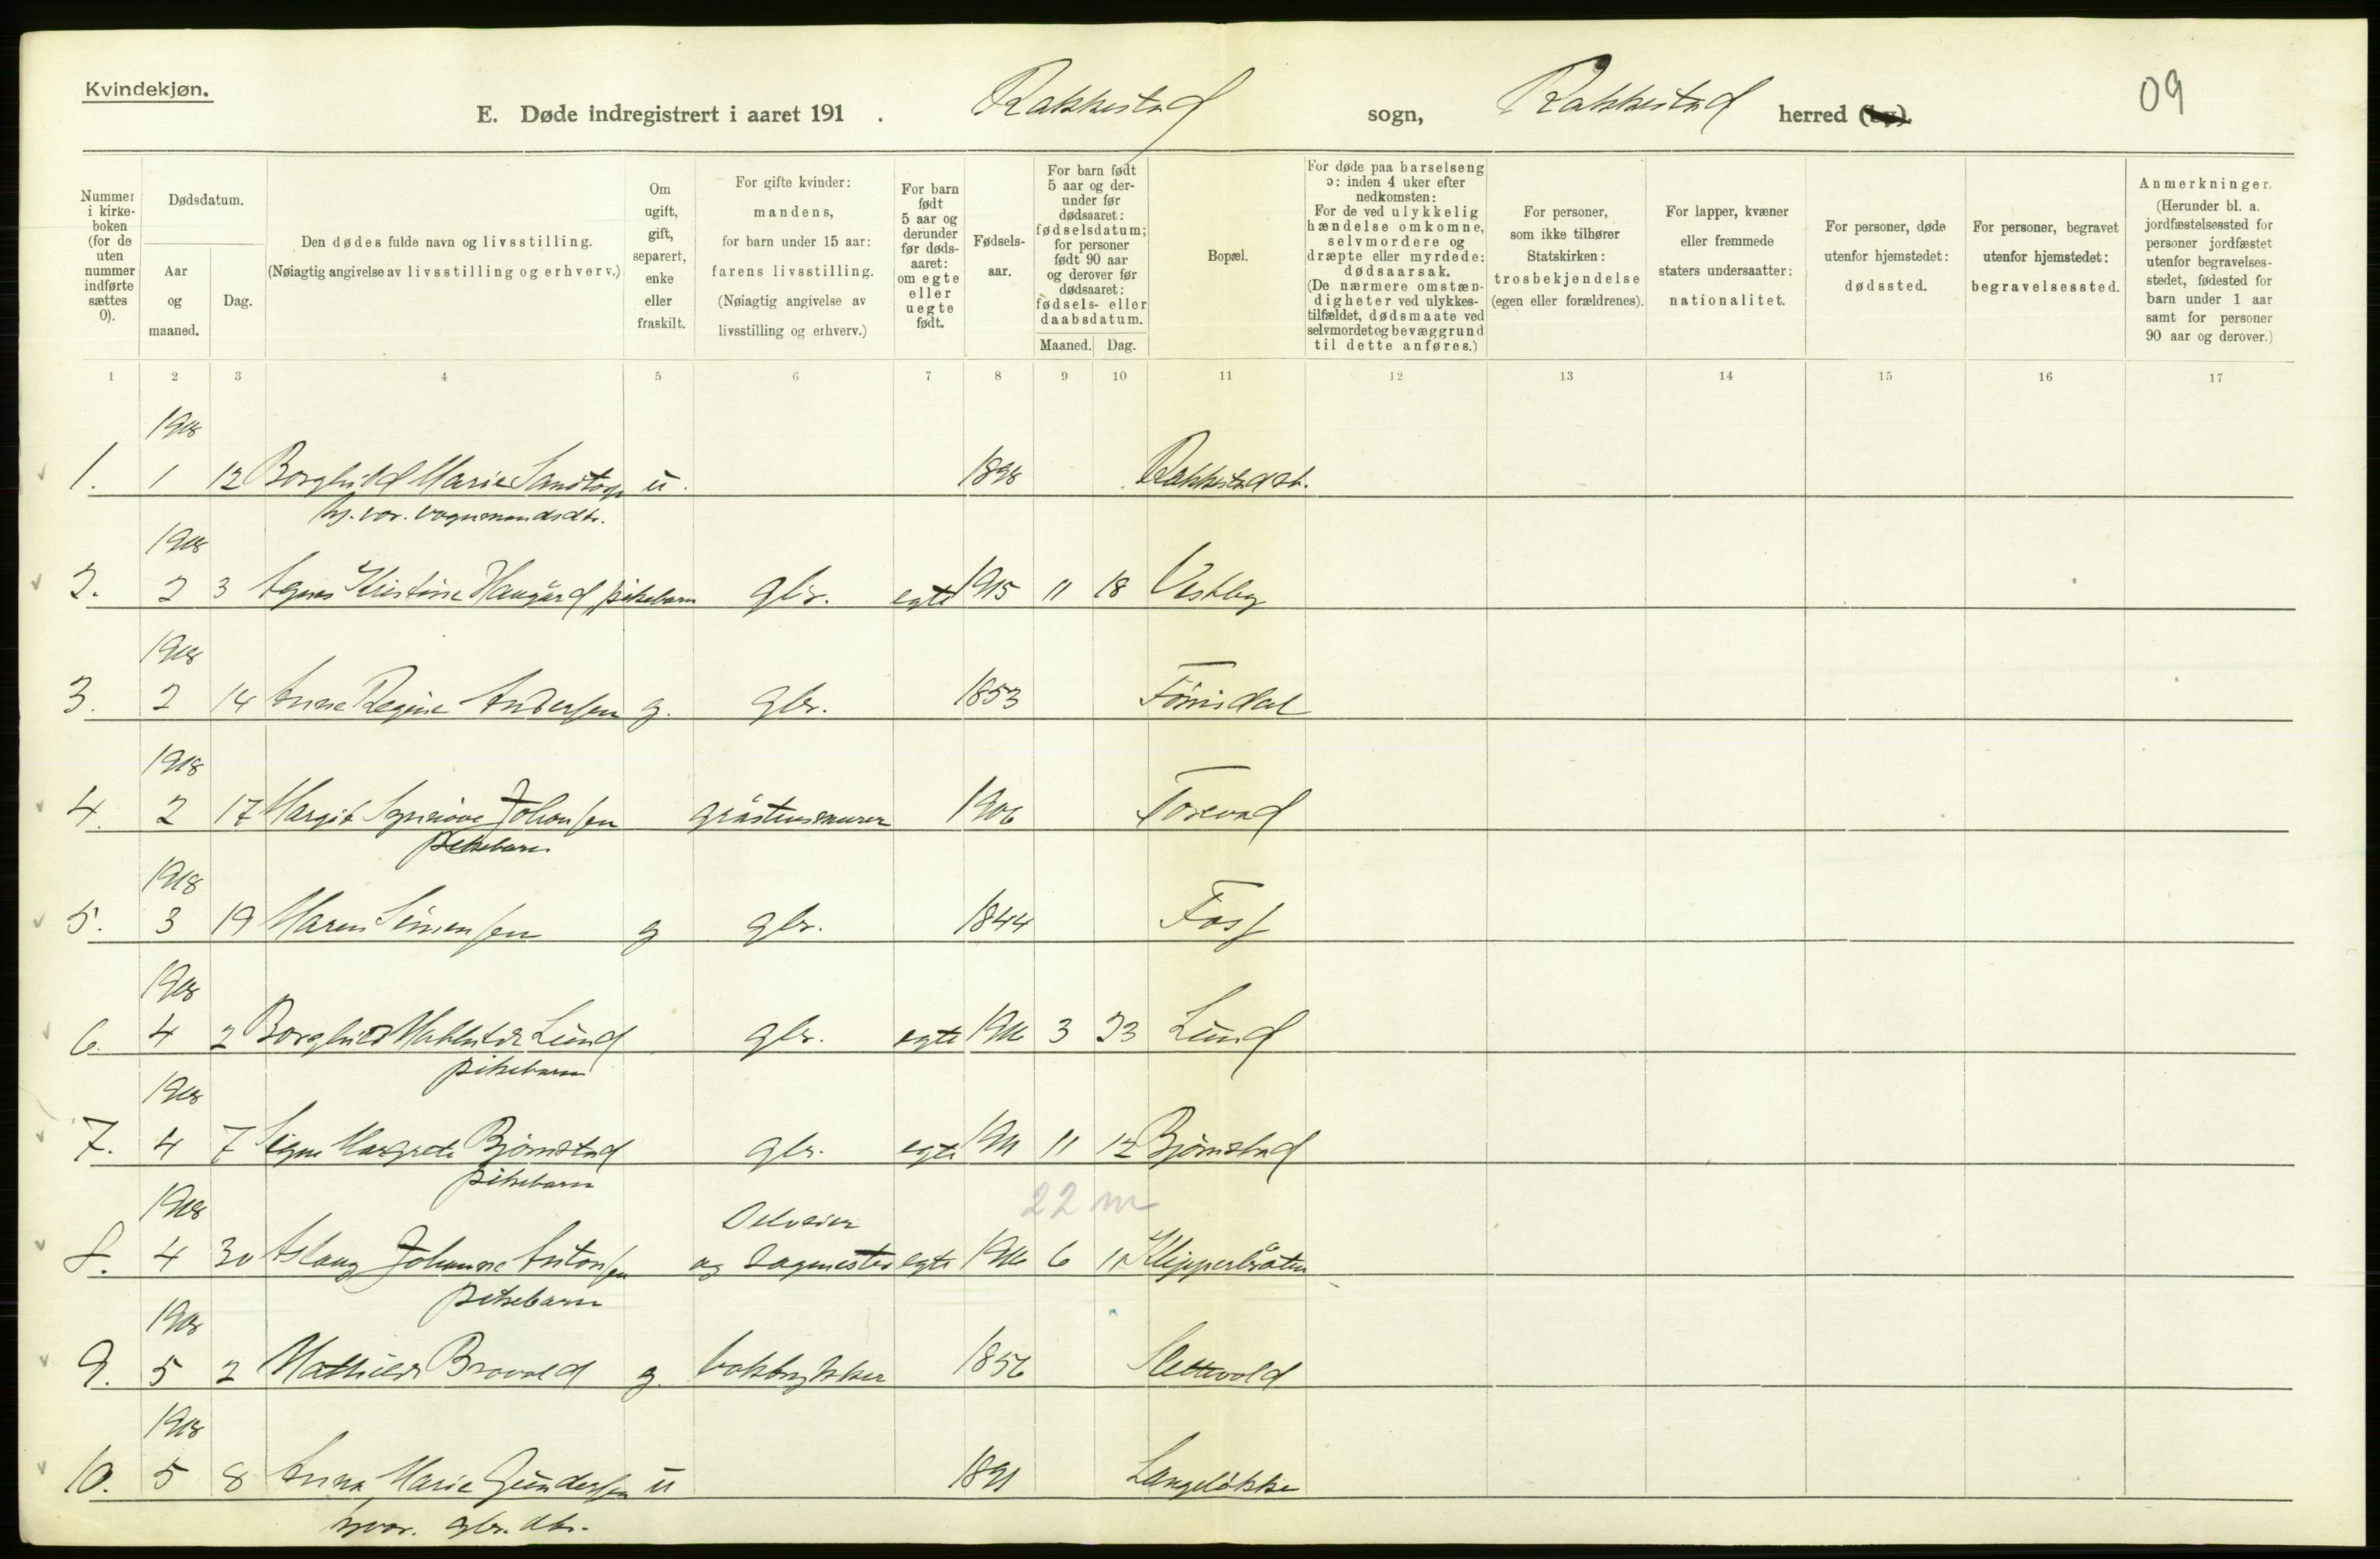 Kvindekjøn.
E. Døde indregistrert i aaret 191 . Rakkestad sogn, Rakkestad herred (by).
09
Nummer i kirkeboken (for de uten nummer indførte sættes 0).
Dødsdatum.
Aar og maaned.
Dag.
Den dødes fulde navn og livsstilling.
(Nøiagtig angivelse av livsstilling og erhverv.)
Om ugift, gift, separert, enke eller fraskilt.
For gifte kvinder: mandens, for barn under 15 aar: farens livsstilling. (Nøiagtig angivelse av livsstilling og erhverv.)
For barn født 5 aar og derunder før dødsaaret: om egte eller uegte født.
Fødselsaar.
For barn født 5 aar og derunder før dødsaaret: fødselsdatum; for personer født 90 aar og derover før dødsaaret: fødsels- eller daabsdatum.
Maaned. Dag.
Bopæl.
For døde paa barselseng ɔ: inden 4 uker efter nedkomsten: For de ved ulykkelig hændelse omkomne, selvmordere og dræpte eller myrdede: dødsaarsak. (De nærmere omstændigheter ved ulykkestilfældet, dødsmaate ved selvmordet og bevæggrund til dette anføres.)
For personer, som ikke tilhører Statskirken: trosbekjendelse (egen eller forældrenes).
For lapper, kvæner eller fremmede staters undersaatter: nationalitet.
For personer, døde utenfor hjemstedet: dødssted.
For personer, begravet utenfor hjemstedet: begravelsessted.
Anmerkninger. (Herunder bl. a. jordfæstelsessted for personer jordfæstet utenfor begravelsesstedet, fødested for barn under 1 aar samt for personer 90 aar og derover.)
1 2 3 4 5 6 7 8 9 10 11 12 13 14 15 16 17
1918
1. 1 12 Borghild Marie u. 1898 Rakkestad st.
hj. vær. vognmandsdtr.
1918
2. 2 3 Agnes Kristine Haugård pikebarn gbr. egte 1915 11 18 Vestby
1918
3. 2 14 Anne Regine Andersen g. gbr. 1853
1918
4. 2 17 Margit Johansen gråstensmurer 1906 Tosevad
pikebarn
1918
5. 3 19 Maren Simensen g gbr. 1844 Foss
1918
6. 4 2 Borghild Mathilde Lund gbr. egte 1916 3 23 Lund
pikebarn
1918
7. 4 7 Signe Margrete Bjørnstad gbr. egte 11 12 Bjørnstad
pikebarn
22 m
1918 Selveier
8. 4 30 Aslaug Johanne Antonsen og sagmester egte 1916 6 Klipperbråten
pikebarn
1918
9. 5 2 Mathilde Brovold g. boktrykker 1856 Slettevold
1918
10. 5 8 Anna Marie Gundersen u 1891 Langeløkke
hj vær. gbr. dtr.